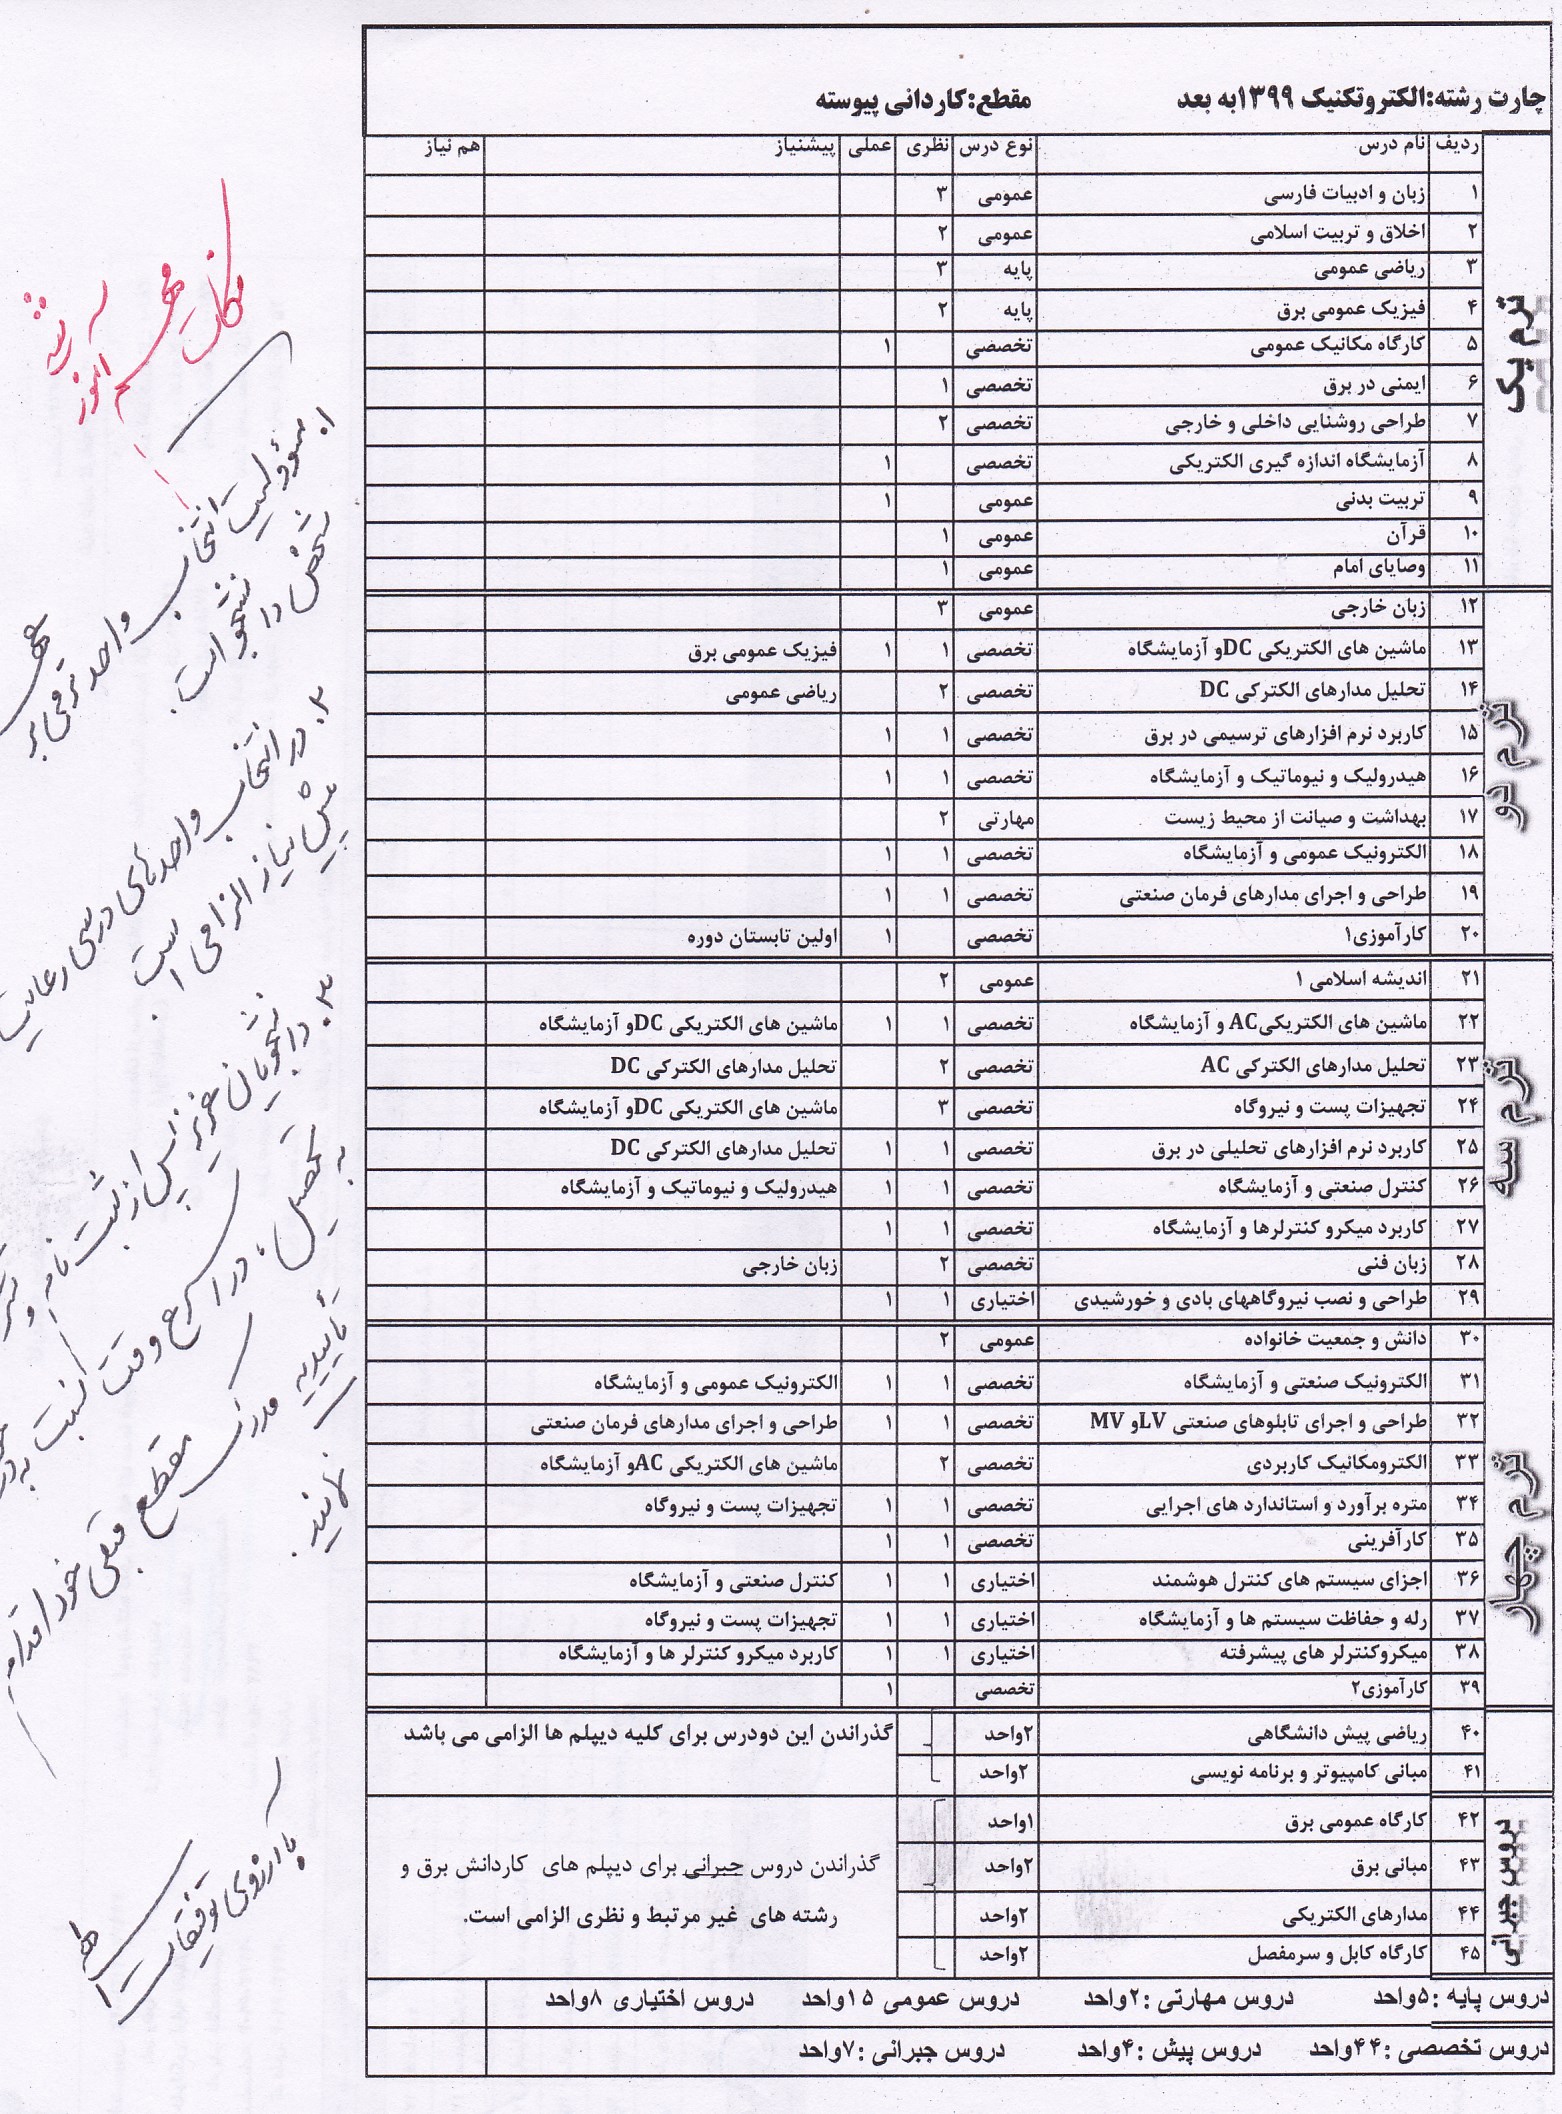 چارت رشته:الکتروتکنیک ۱۳۹۹به بعد مقطع:کاردانی پیوسته
ردیف نام درس نوع درس نظری عملی پیشنیاز هم نیاز
ترم یک
۱ زبان و ادبیات فارسی عمومی ۳
۲ اخلاق و تربیت اسلامی عمومی ۲
۳ ریاضی عمومی پایه ۳
۴ فیزیک عمومی برق پایه ۲
۵ کارگاه مکانیک عمومی تخصصی ۱
۶ ایمنی در برق تخصصی ۱
۷ طراحی روشنایی داخلی و خارجی تخصصی ۲
۸ آزمایشگاه اندازه گیری الکتریکی تخصصی ۱
۹ تربیت بدنی عمومی ۱
۱۰ قرآن عمومی ۱
۱۱ وصایای امام عمومی ۱
ترم دو
۱۲ زبان خارجی عمومی ۳
۱۳ ماشین های الکتریکی DCو آزمایشگاه تخصصی ۱ ۱ فیزیک عمومی برق
۱۴ تحلیل مدارهای الکترکی DC تخصصی ۲ ریاضی عمومی
۱۵ کاربرد نرم افزارهای ترسیمی در برق تخصصی ۱ ۱
۱۶ هیدرولیک و نیوماتیک و آزمایشگاه تخصصی ۱ ۱
۱۷ بهداشت و صیانت از محیط زیست مهارتی ۲
۱۸ الکترونیک عمومی و آزمایشگاه تخصصی ۱ ۱
۱۹ طراحی و اجرای مدارهای فرمان صنعتی تخصصی ۱ ۱
۲۰ کارآموزی۱ تخصصی ۱ اولین تابستان دوره
ترم سه
۲۱ اندیشه اسلامی ۱ عمومی ۲
۲۲ ماشین های الکتریکیAC و آزمایشگاه تخصصی ۱ ۱ ماشین های الکتریکی DCو آزمایشگاه
۲۳ تحلیل مدارهای الکترکی AC تخصصی ۲ تحلیل مدارهای الکترکی DC
۲۴ تجهیزات پست و نیروگاه تخصصی ۳ ماشین های الکتریکی DCو آزمایشگاه
۲۵ کاربرد نرم افزارهای تحلیلی در برق تخصصی ۱ ۱ تحلیل مدارهای الکترکی DC
۲۶ کنترل صنعتی و آزمایشگاه تخصصی ۱ ۱ هیدرولیک و نیوماتیک و آزمایشگاه
۲۷ کاربرد میکرو کنترلرها و آزمایشگاه تخصصی ۱ ۱
۲۸ زبان فنی تخصصی ۲ زبان خارجی
۲۹ طراحی و نصب نیروگاههای بادی و خورشیدی اختیاری ۱ ۱
ترم چهار
۳۰ دانش و جمعیت خانواده عمومی ۲
۳۱ الکترونیک صنعتی و آزمایشگاه تخصصی ۱ ۱ الکترونیک عمومی و آزمایشگاه
۳۲ طراحی و اجرای تابلوهای صنعتی LVو MV تخصصی ۱ ۱ طراحی و اجرای مدارهای فرمان صنعتی
۳۳ الکترومکانیک کاربردی تخصصی ۲ ماشین های الکتریکی ACو آزمایشگاه
۳۴ متره برآورد و استاندارد های اجرایی تخصصی ۱ ۱ تجهیزات پست و نیروگاه
۳۵ کارآفرینی تخصصی ۱ ۱
۳۶ اجزای سیستم های کنترل هوشمند اختیاری ۱ ۱ کنترل صنعتی و آزمایشگاه
۳۷ رله و حفاظت سیستم ها و آزمایشگاه اختیاری ۱ ۱ تجهیزات پست و نیروگاه
۳۸ میکروکنترلر های پیشرفته اختیاری ۱ ۱ کاربرد میکرو کنترلر ها و آزمایشگاه
۳۹ کارآموزی۲ تخصصی ۱
۴۰ ریاضی پیش دانشگاهی ۲واحد گذراندن این دودرس برای کلیه دیپلم ها الزامی می باشد
۴۱ مبانی کامپیوتر و برنامه نویسی ۲واحد
دروس جبرانی
۴۲ کارگاه عمومی برق ۱واحد
۴۳ مبانی برق ۲واحد گذراندن دروس جبرانی برای دیپلم های کاردانش برق و
۴۴ مدارهای الکتریکی ۲واحد رشته های غیر مرتبط و نظری الزامی است.
۴۵ کارگاه کابل و سرمفصل ۲واحد
دروس پایه :۵واحد دروس مهارتی :۲واحد دروس عمومی ۱۵واحد دروس اختیاری ۸واحد
دروس تخصصی :۴۴واحد دروس پیش :۴واحد دروس جبرانی :۷واحد
نکات مهم
۱. مسئولیت انتخاب واحد ترمی بر
شخص دانشجو است.
۲. در انتخاب واحدهای درسی رعایت
پیش نیاز الزامی است.
۳. دانشجویان عزیز پس از ثبت نام و
تحصیل، در اسرع وقت نسبت به
تأییدیه مدرک مقطع قبلی خود اقدام
نمایند.
با آرزوی توفیقات